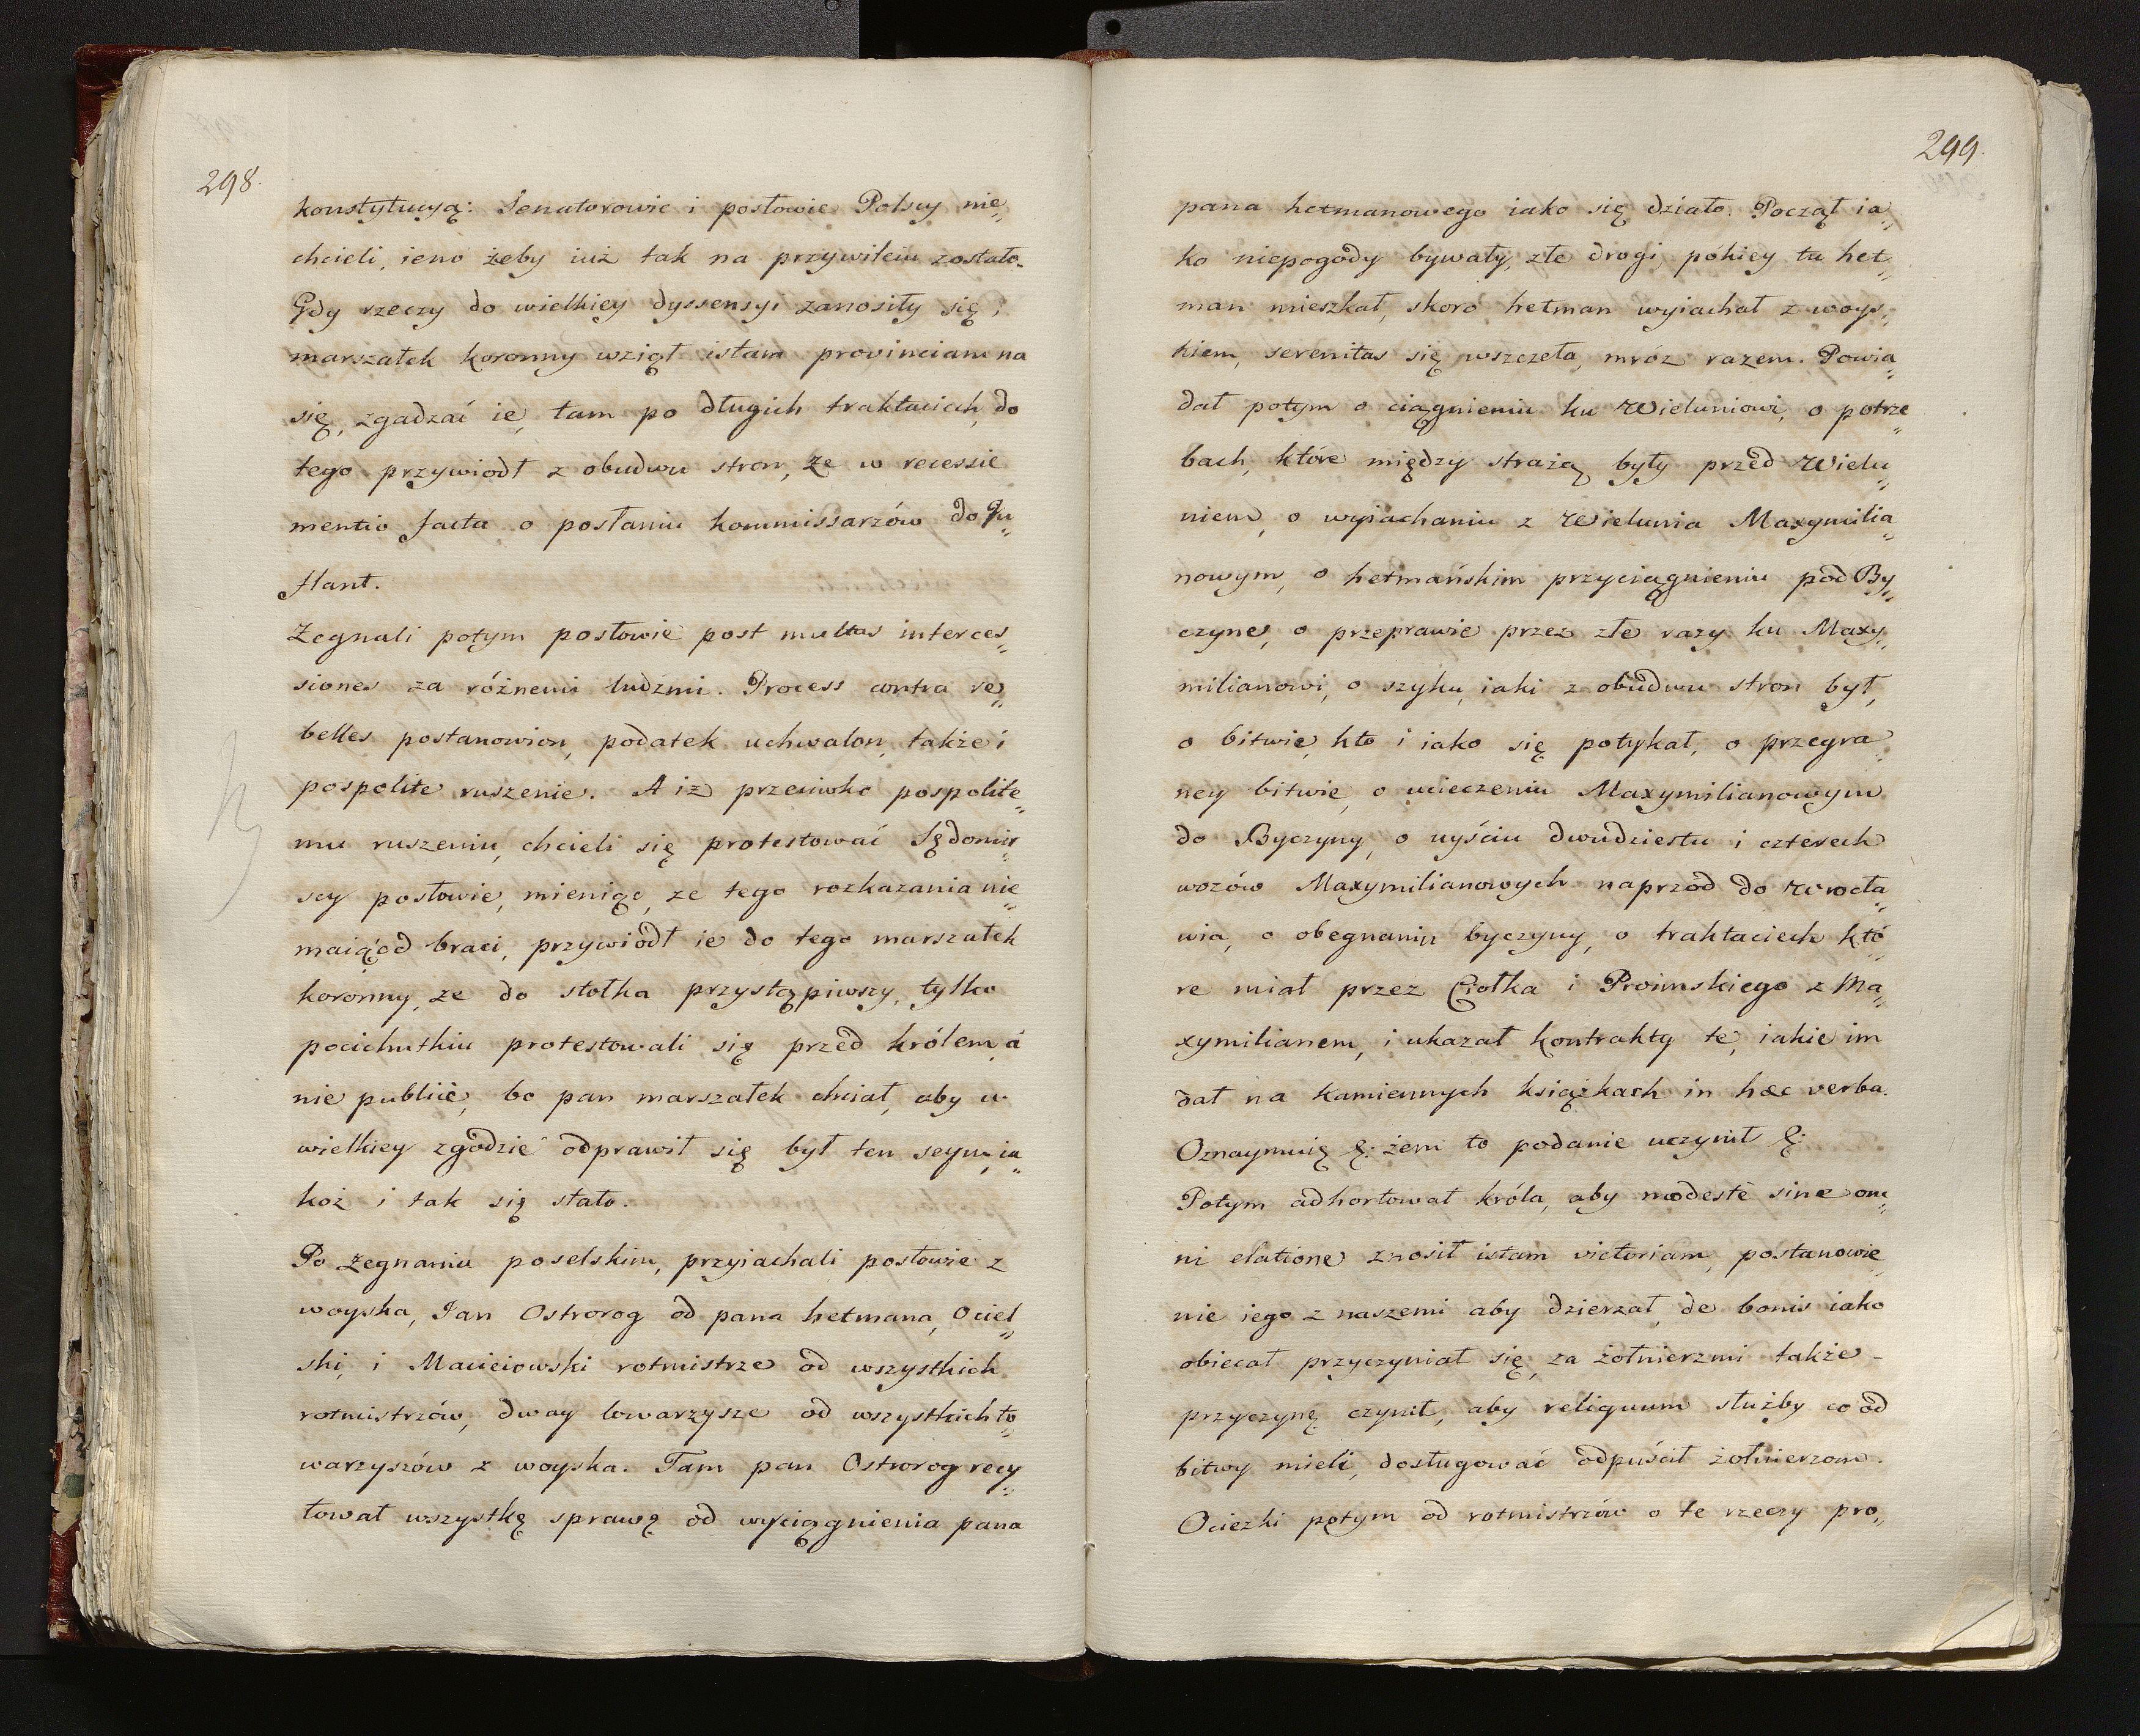 298.
konstytucyą: Senatorowie i posłowie Polscy nie„
chcieli, ieno żeby iuż tak na przywileiu zostało.
Gdy rzeczy do wielkiey dyssensyi zanosiły się,
marszałek koronny wziął istam provinciam na
się, zgadzać ie, tam po długich traktaciech, do
tego przywiodł z obudwu stron, że w recessie
mentio facta o posłaniu kommissarzów do In„
flant.
Żegnali potym posłowie post multas interces„
siones za różnemi ludźmi. Process contra re„
belles postanowion, podatek uchwalon, także i
pospolite ruszenie. A iż przeciwko pospolite„
mu ruszeniu, chcieli się protestować Sędomir„
scy posłowie, mieniąc, że tego rozkazania nie„
maią od braci, przywiódł ie do tego marszałek
koronny, że do stołka przystąpiwszy, tylko
pocichutkiu protestowali się przed królem, á
nie publicè, bo pan marszałek chciał, aby w
wielkiey zgodzie odprawił się był ten seym, ia„
koż i tak się stało.
Po żegnaniu poselskim, przyiachali posłowie z
woyska, Jan Ostrorog od pana hetmana, Ociel„
ski, i Macieiowski rotmistrze od wszystkich
rotmistrzów, dway towarzysze od wszystkich to„
warzyszów z woyska. Tam pan Ostrorog recy„
tował wszystkę sprawę od wyciągnienia pana
299.
pana hetmanowego iako się działo. Począł ia„
ko niepogody bywały, złe drogi, pókiey tu het„
man mieszkał, skoro hetman wyiachał z woys„
kiem, serenitas się wszczeła, mróz razem. Powia„
dał potym o ciągnieniu ku Wieluniowi, o potrze„
bach, które między strażą były przed Wielu„
niem, o wyiachaniu z Wielunia Maxymilia„
nowym, o hetmańskim przyciągnieniu pod By„
czyne, o przeprawie przez złe razy ku Maxy„
milianowi, o szyku, iaki z obudwu stron był,
o bitwie, kto i iako się potykał, o przegra„
ney bitwie, o ucieczeniu Maxymilianowym
do Byczyny, o uyściu dwudziestu i czterech
wozów Maxymilianowych naprzod do Wrocła„
wia, o obegnaniu byczyny, o traktaciech któ„
re miał przez Ciołka i Proimskiego z Ma„
xymilianem, i ukazał kontrakty te, iakie im
dał na kamiennych książkach in hæc verba.
Oznaymuię &: żem to podanie uczynił &:
Potym adhortował króla, aby modestè sine om„
ni elatione znosił istam victoriam, postanowie„
nie iego z naszemi aby dzierżał, de bonis iako
obiecał przyczyniał się, za żołnierzmi także
przyczynę czynił, aby reliquum służby co od
bitwy mieli, dosługować odpuścił żołnierzom.
Ociezki potym od rotmistrzów o te rzeczy pro„